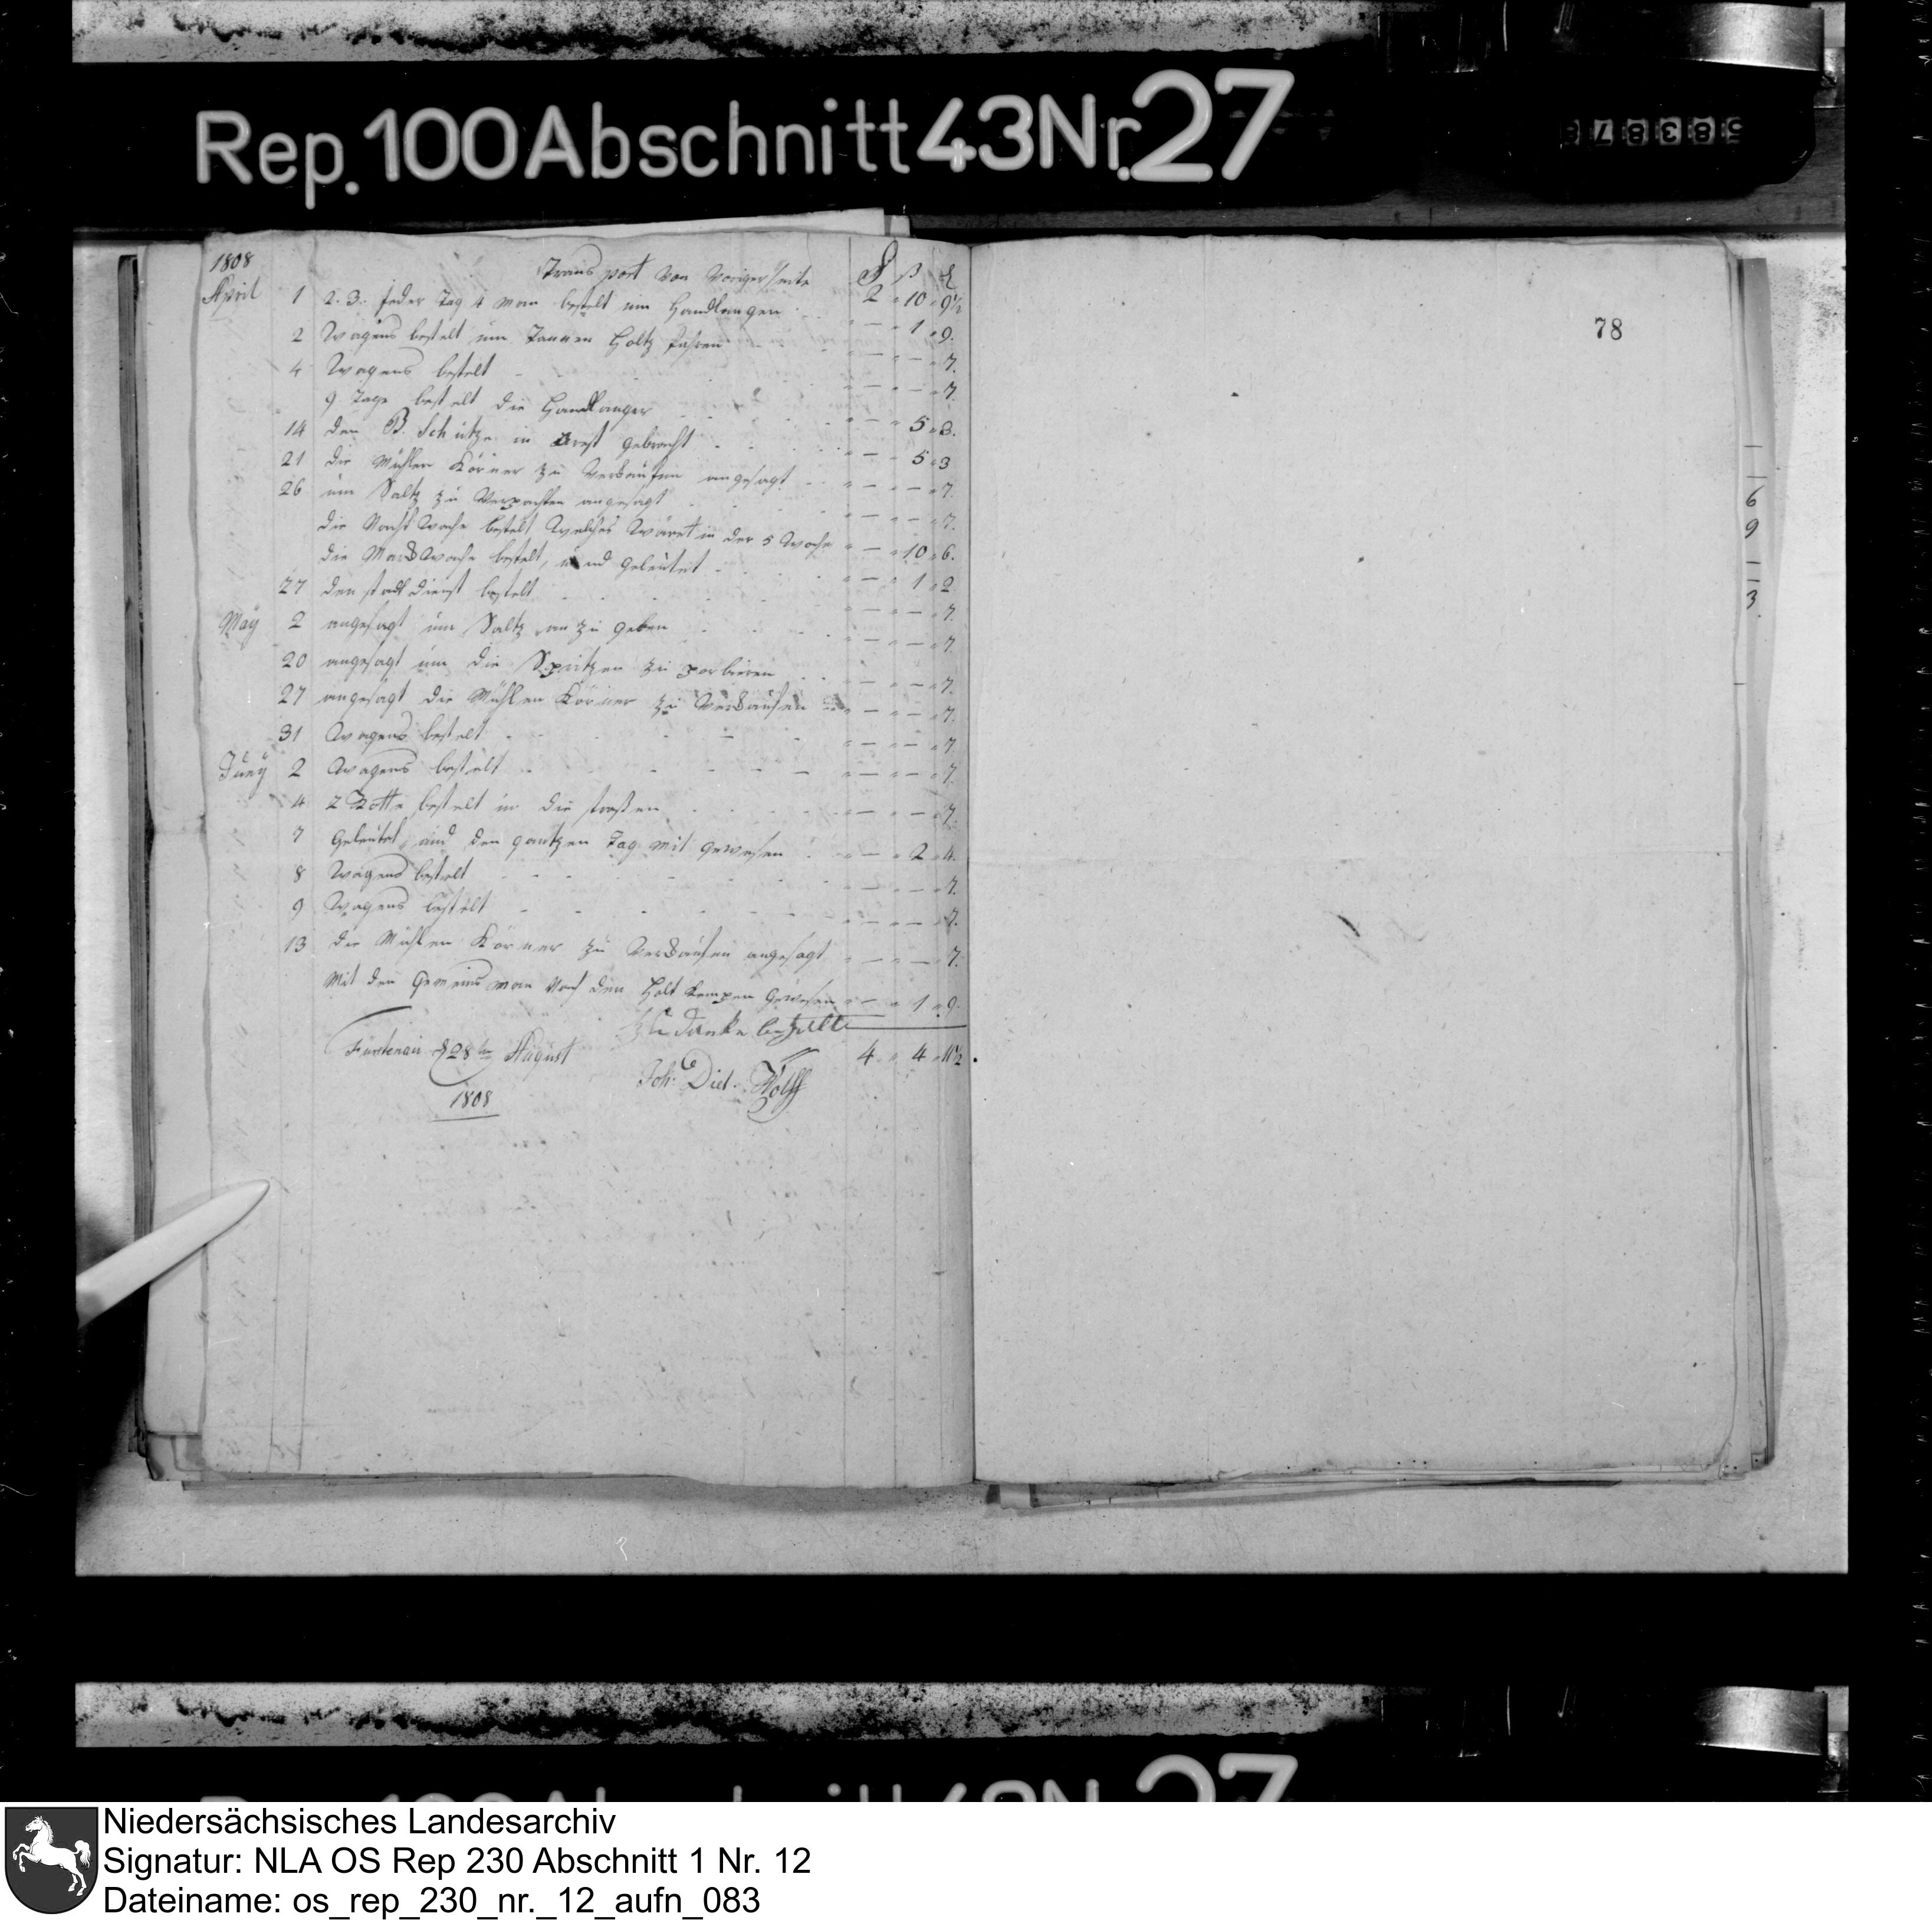 Rep. 100 Abschnitt 43 Nr. 27
1808
Transport von voriger seite
2 " 10 " 9½
April 1 2. 3. jeder Tag 4 man bestelt um Handlangen " — " 1 " 9.
2 Wagens bestelt um Tannen Holtz fahren " — " — " 7.
4 Wagens bestelt " — " — " 7.
9 Tage bestelt die Handlanger " — " 5 " 3.
14 den B. Schütze in Arest gebracht " — " 5 " 3
21 die Mühlen Körner zu verkaufen angesagt " — " — " 7.
26 um Saltz zu verpachten angesagt " — " — " 7.
die Nacht Wache bestelt welches wäret in der 5 Woche " — " 10 " 6.
die Markwache bestelt, und geleutet " — " 1 " 2
27 den stadt dienst bestelt " — " — " 7.
May 2 angesagt um Saltz an zu geben " — " — " 7.
20 angesagt um die Spritzen zu porbieren " — " — " 7.
27 angesagt die Mühlen Körner zu verkaufen " — " — " 7.
31 Wagens bestelt " — " — " 7
Juny 2 Wagens bestelt " — " — " 7.
4 2 Rotte bestelt in die straßen " — " — " 7.
7 geleutet und den gantzen Tag mit gewesen " — " 2 " 4.
8 Wagens bestelt " — " — " 7.
9 Wagens bestelt " — " — " 7.
13 die Mühlen Körner zu verkaufen angesagt " — " — " 7.
Mit den Gemeins man nach den Holt kempen gewesen " — " 1 " 9.
zu danke bezhlt
4 " 4 " 11½
Furstenau d 28ten August
1808
Joh: Diet. Wolff
78
6
9
3
Niedersächsisches Landesarchiv
Signatur: NLA OS Rep 230 Abschnitt 1 Nr. 12
Dateiname: os_rep_230_nr._12_aufn_083